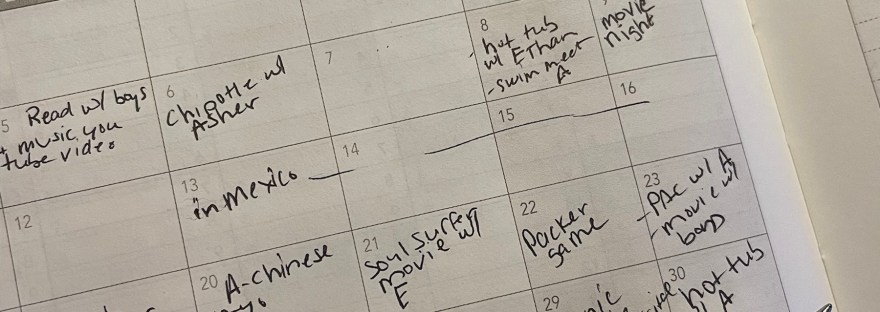 5 Read w/ boys
+ music you
tube video
6
Chipotle w/
Asher
7
8
- hot tub
w/ Ethan
- swim meet
A
movie
night
12
13
in Mexico
14
15
16
20 A-chinese
21
Soul surfer
movie w/
E
22
Packer
game
23
- PAC w/ A
- movie w/
boys
29
30
hot tub
A